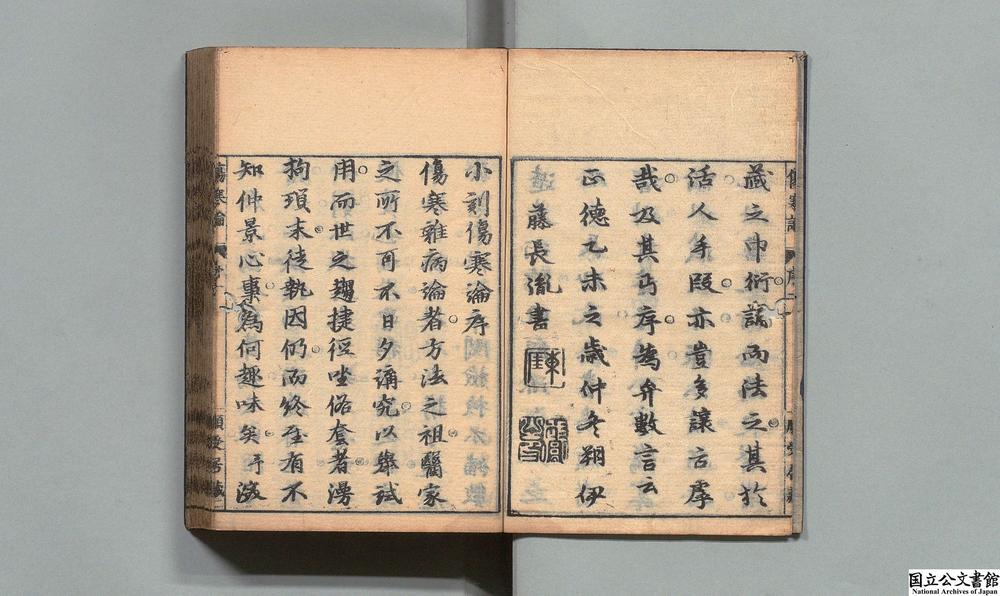 藏之巾衍誦而法之其於
活人手段亦豈多讓古㢘
哉及其丐序為弁數言云
正德乙未之歲仲冬朔伊
藤長胤書
小刻傷寒論序
傷寒雜病論者方法之祖醫家
之所不可不日夕講究以舉試
用而世之趨捷徑坐俗套者漫
拘瑣末徒執因仍而終至有不
知仲景心事為何趣味矣予激
傷寒論
国立公文書館
National Archives of Japan